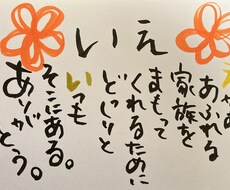 いえ
あふれる
家族を
まもって
くれるために
どっしりと
いつも
そこにある。
ありがとう。